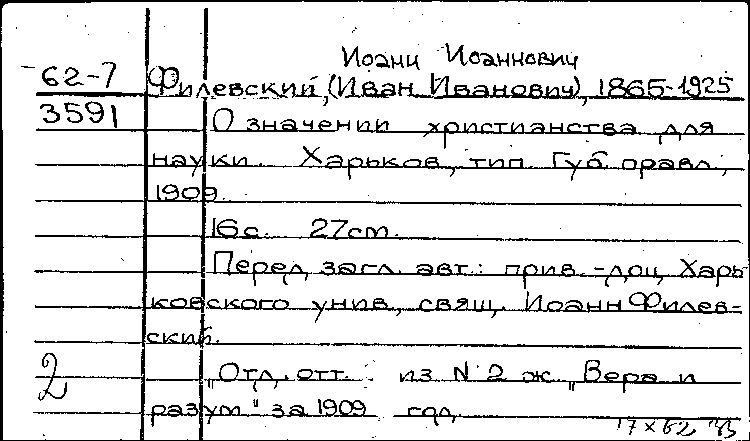 Иоанн Иоаннович
62-7 Филевский, (Иван Иванович), 1865-1925
3591 О значении христианства для
науки. Харьков, тип. Губ. правл.,
1909.
16с. 27см.
Перед загл. авт.: прив.-доц. Харь
ковского унив., свящ. Иоанн Филев-
ский.
2 "Отд. отт. из N 2 ж. "Вера и
разум" за 1909 год.